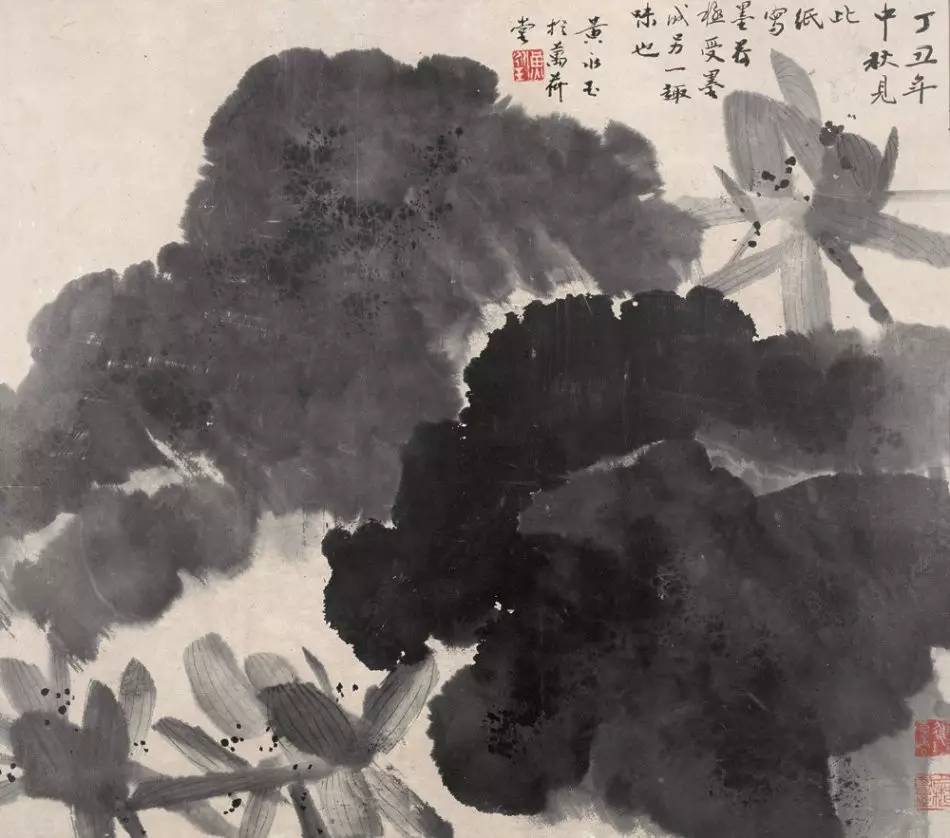 丁丑年
中秋見
此
紙
寫
墨荷
極受墨
成另一趣
味也
黄永玉
於萬荷
堂